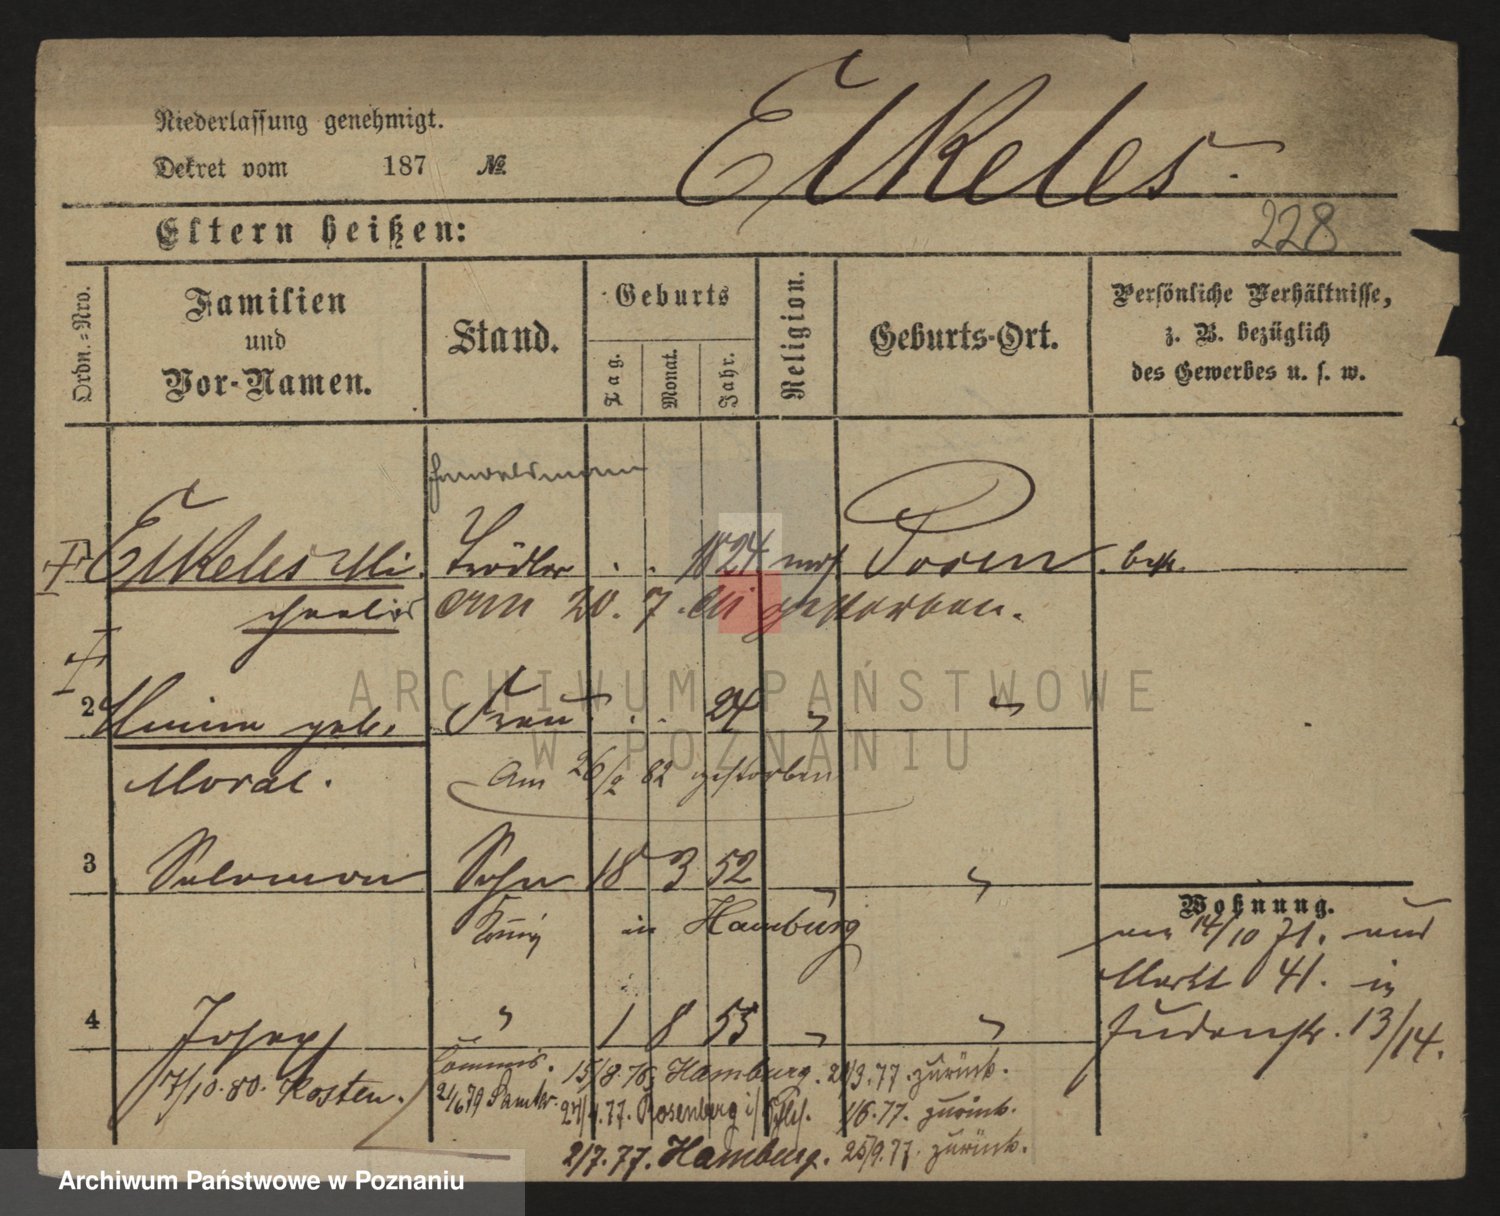 Niederlassung genehmigt.
Dekret vom 187 №
Elkeles.
228
Eltern heißen:
Ordn.=Nro.
Familien
und
Vor-Namen.
Stand.
Geburts
Tag.
Monat.
Jahr.
Religion.
Geburts-Ort.
Persönliche Verhältnisse,
z. B. bezüglich
des Gewerbes u. s. w.
Handelsmann
1 Elkeles Mi- Trödler . . 1824 mos Posen
chaelis am 20. 7. gestorben.
2 geb. Frau . . 24 " "
Moral. Am 26/2 82 gestorben
3 Salomon Sohn 18 3 52 " "
in Hamburg
Wohnung.
14/10 71. und
Markt 41. in
Judenstr. 13/14.
4 Joseph " 1 8 55 " "
Commis. 15/8.76 Hamburg. 3.77. zurück.
17/10.80. Kosten. 21/6 79 Samter. .77. Rosenberg i/Schles. 1/6.77. zurück.
2/7.77. Hamburg. 25/9.77. zurück.
ARCHIWUM PAŃSTWOWE
W POZNANIU
Archiwum Państwowe w Poznaniu